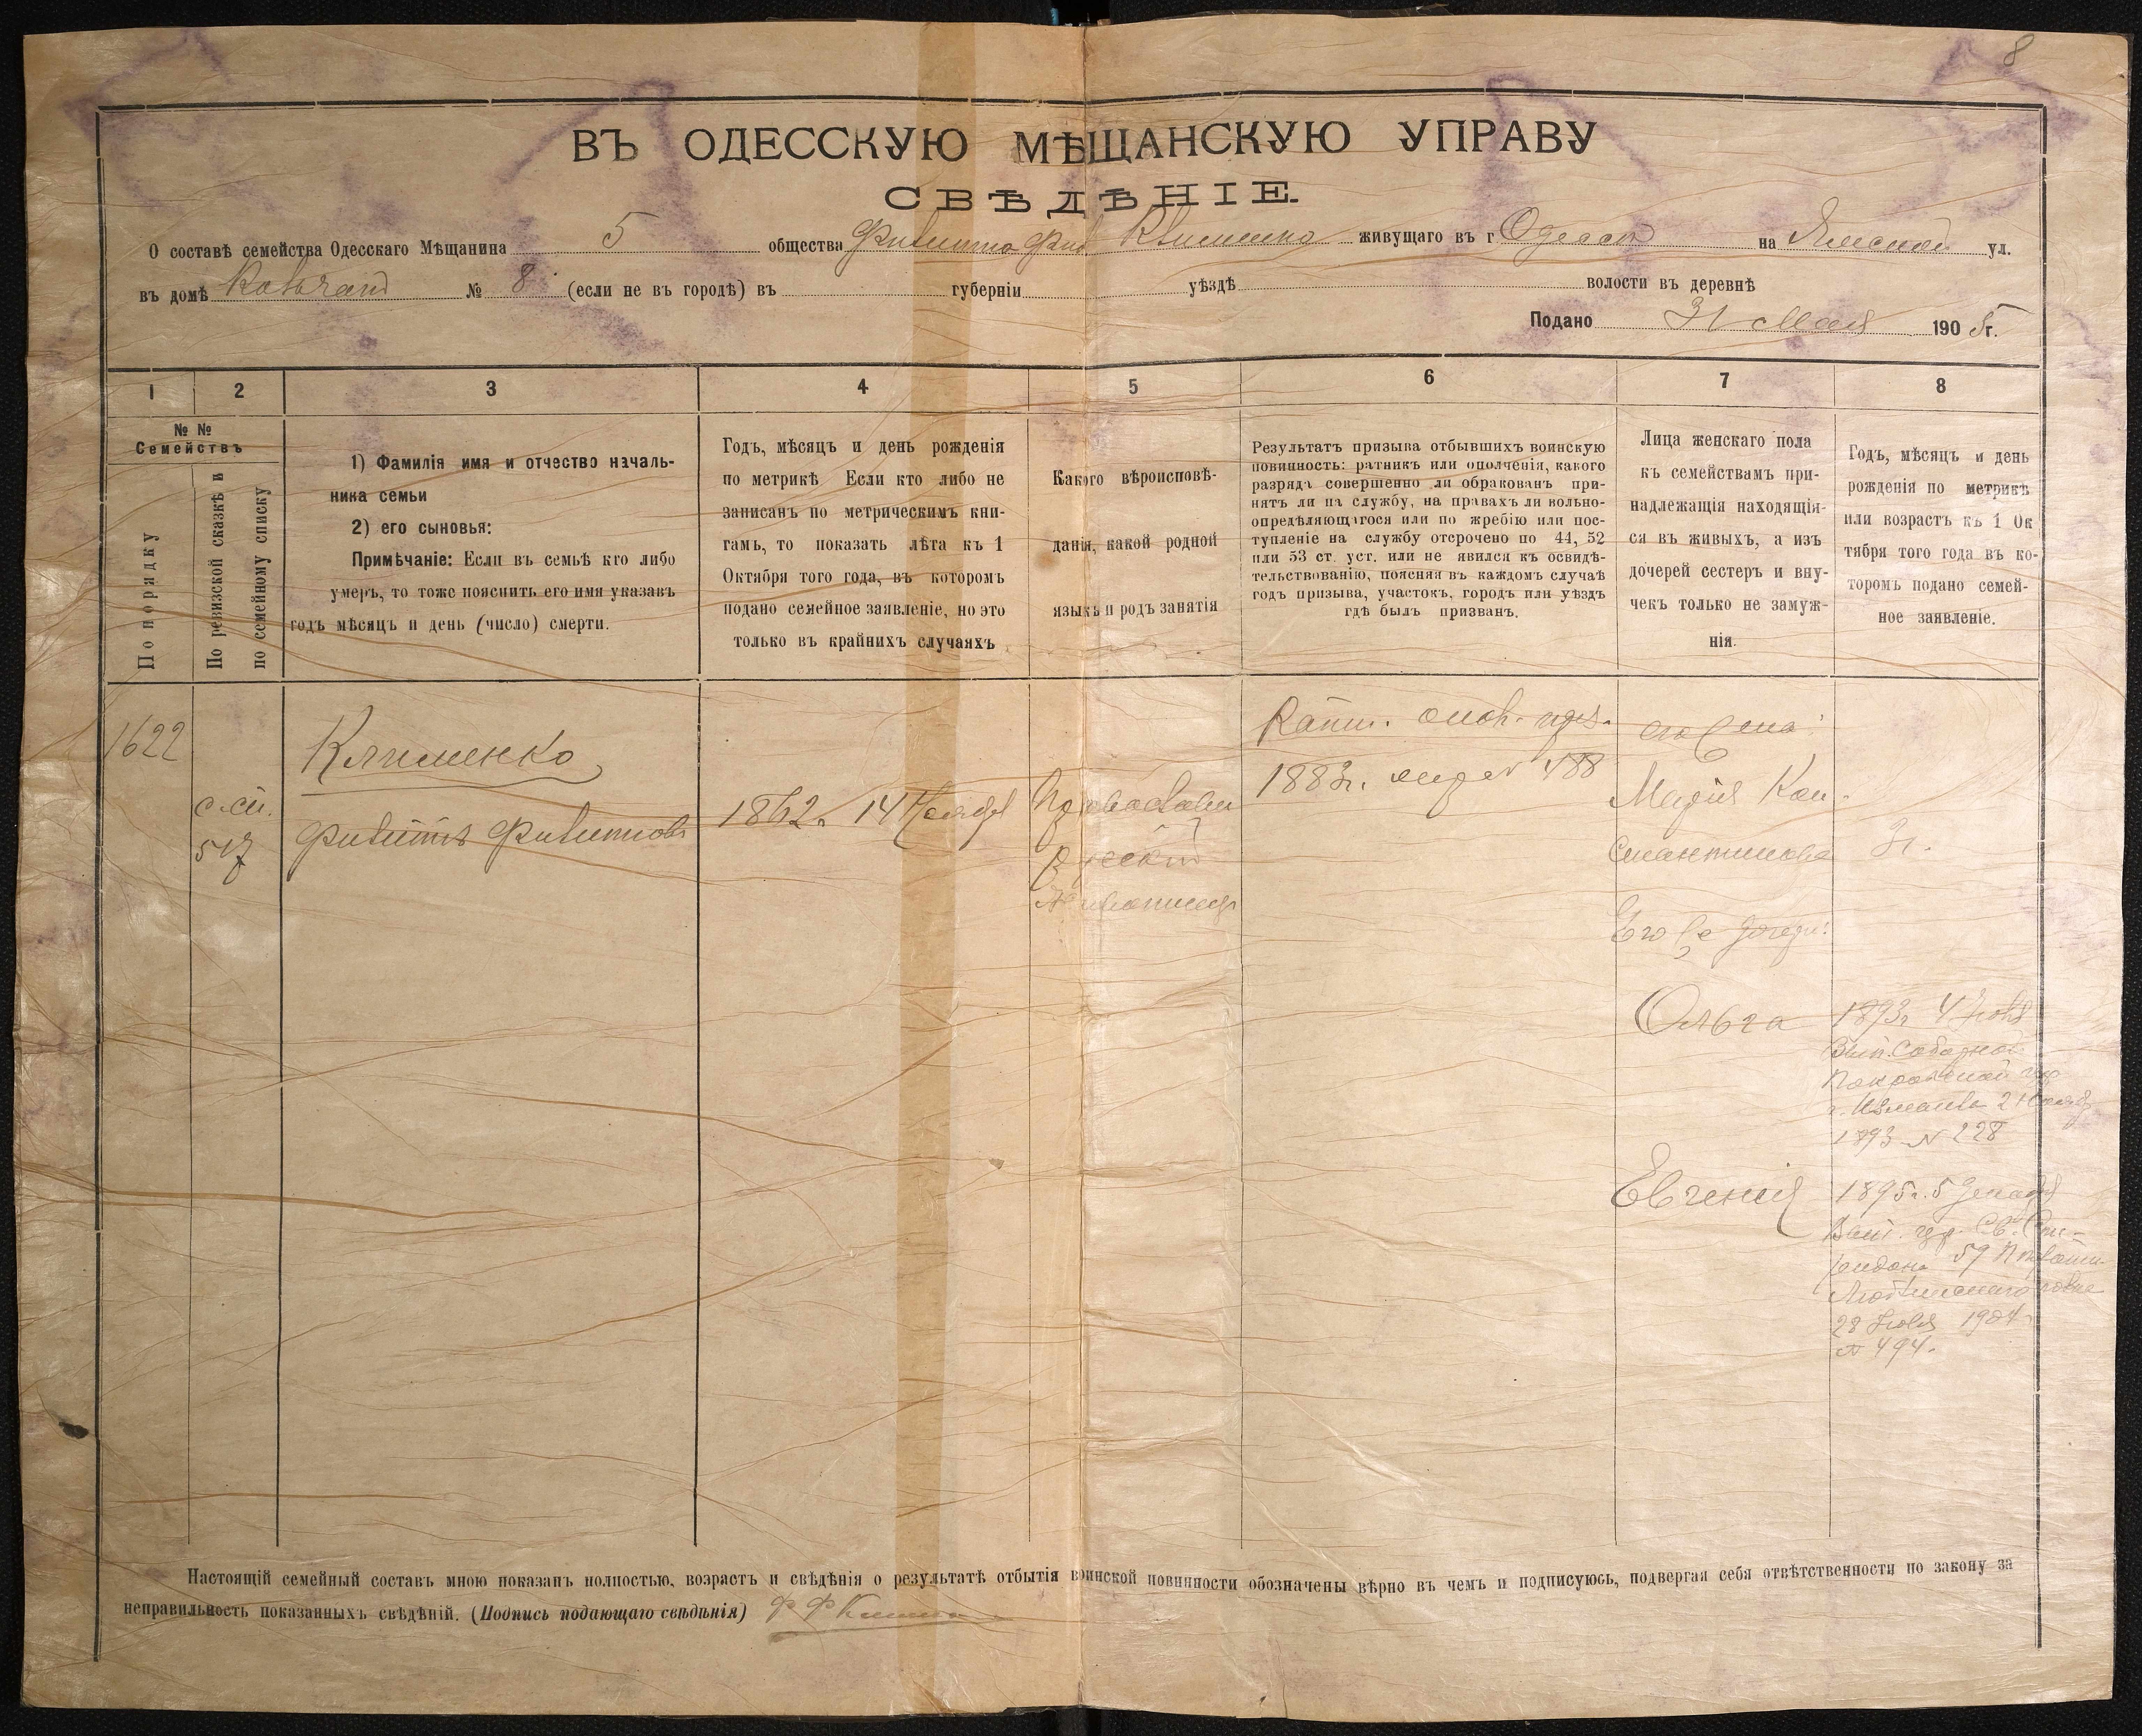 8
ВЪ ОДЕССКУЮ МѢЩАНСКУЮ УПРАВУ
СВѢДѢНІЕ.
О составѣ семейства Одесскаго Мѣщанина 5 общества Филиппа Фил Клименко живущаго въ г Одессѣ на Ямской ул.
въ домѣ № 8 (если не въ городѣ) въ губерніи уѣздѣ волости въ деревнѣ
Подано 31 Мая 1905 г.
1 2 3 4 5 6 7 8
№ №
Семействъ
По порядку
По ревизской сказкѣ и
по семейному списку
1) Фамилія имя и отчество началь-
ника семьи
2) его сыновья:
Примѣчаніе: Если въ семьѣ кто либо
умеръ, то тоже пояснить его имя указавъ
годъ мѣсяцъ и день (число) смерти.
Годъ, мѣсяцъ и день рожденія
по метрикѣ Если кто либо не
записанъ по метрическимъ кни-
гамъ, то показать лѣта къ 1
Октября того года, въ которомъ
подано семейное заявленіе, но это
только въ крайнихъ случаяхъ
Какого вѣроисповѣ-
данія, какой родной
языкъ и родъ занятія
Результатъ призыва отбывшихъ воинскую
повинность: ратникъ или ополченія, какого
разряда совершенно ли обракованъ при-
нятъ ли на службу, на правахъ ли вольно-
опредѣляющагося или по жребію или пос-
тупленіе на службу отсрочено по 44, 52
или 53 ст. уст. или не явился къ освидѣ-
тельствованію, поясняя въ каждомъ случаѣ
годъ призыва, участокъ, городъ или уѣздъ
гдѣ былъ призванъ.
Лица женскаго пола
къ семействамъ при-
надлежащія находящія-
ся въ живыхъ, а изъ
дочерей сестеръ и вну-
чекъ только не замуж-
нія.
Годъ, мѣсяцъ и день
рожденія по метрикѣ
или возрастъ къ 1 Ок
тября того года въ ко-
торомъ подано семей-
ное заявленіе.
1622
с.сп.
517
Клименко
Филиппъ Филипповъ
1862г. 14 Ноября
Православн
Русскій
Живописецъ
Ратн. опол.
1883г. 488
его жена:
Марія Кон-
стантинова
31.
Его же дочери:
Ольга
1893г 4 Іюля
Вып. Соборной
Покровской цер
г. Измаила 2 Ноября
1893 № 228
Евгенія
1895г. 5 Декабря
цер. Св. Спи-
ридона 59 Пѣхотн.
Люблинскаго полка
28 Іюля 1904
№ 494.
Настоящій семейный составъ мною показанъ полностью, возрастъ и свѣдѣнія о результатѣ отбытія воинской повинности обозначены вѣрно въ чемъ и подписуюсь, подвергая себя отвѣтственности по закону за
неправильность показанныхъ свѣдѣній. (Подпись подающаго свѣдѣнія) Ф Ф Клименко